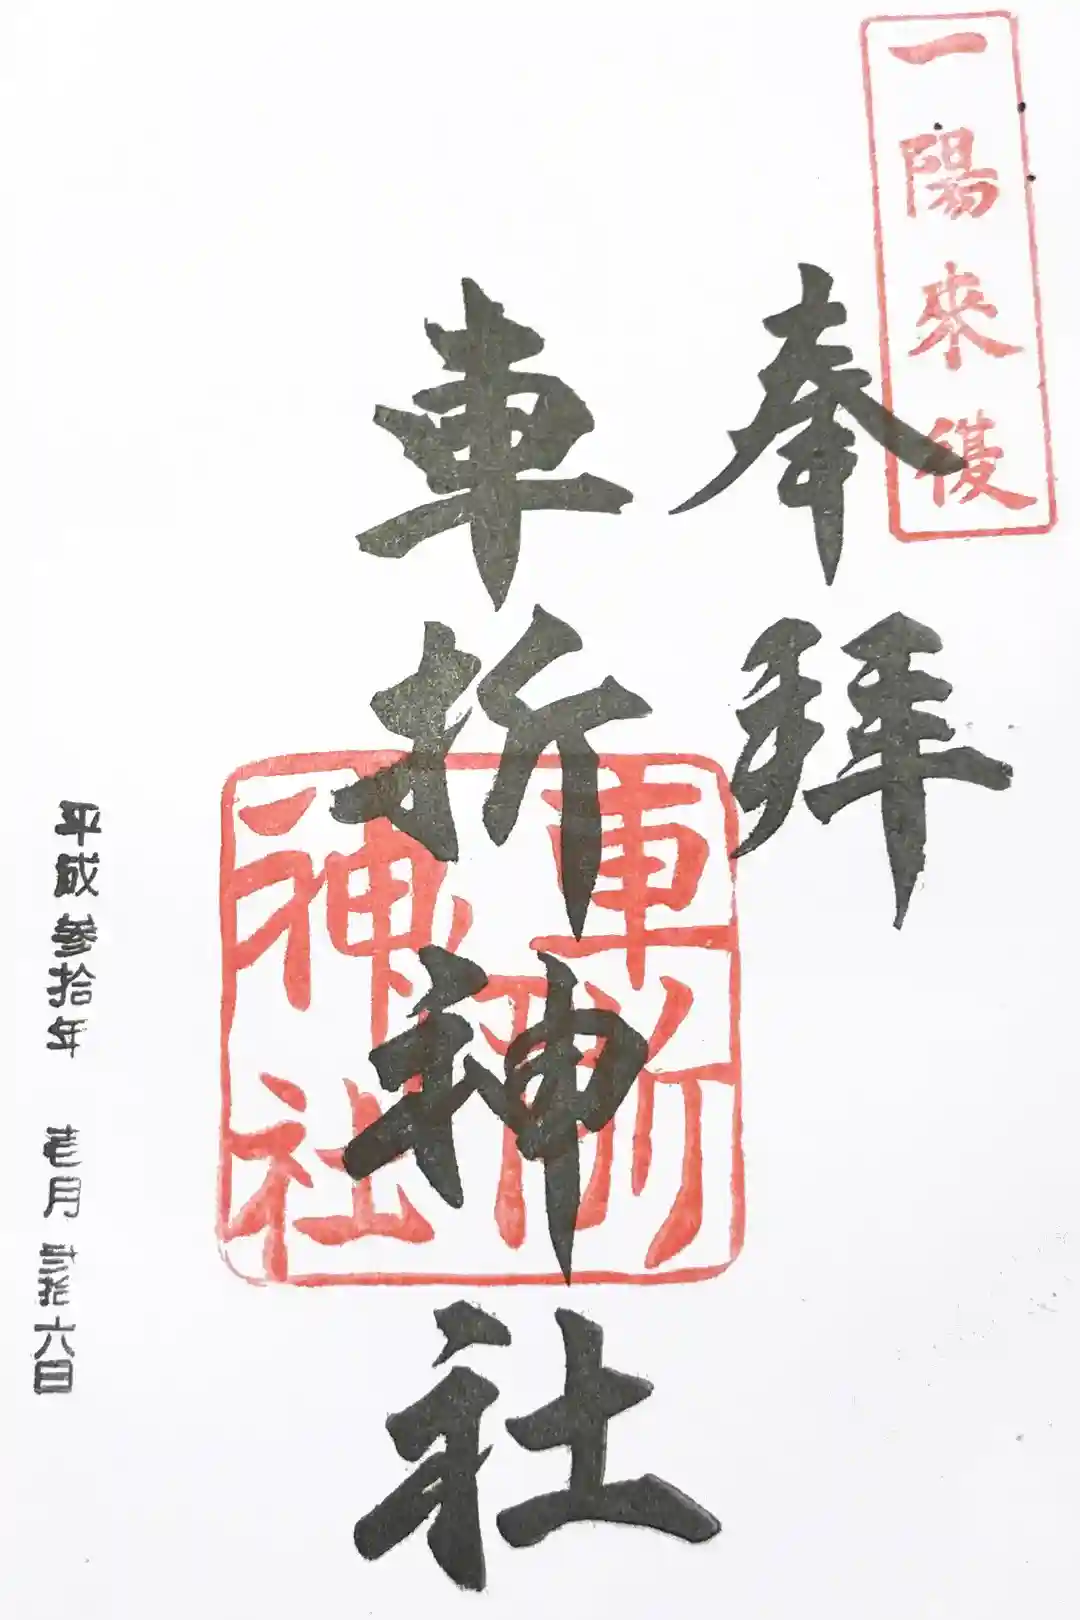 一陽來復
奉拝
車折神社
車折
神社
平成参拾年 壱月弐拾六日